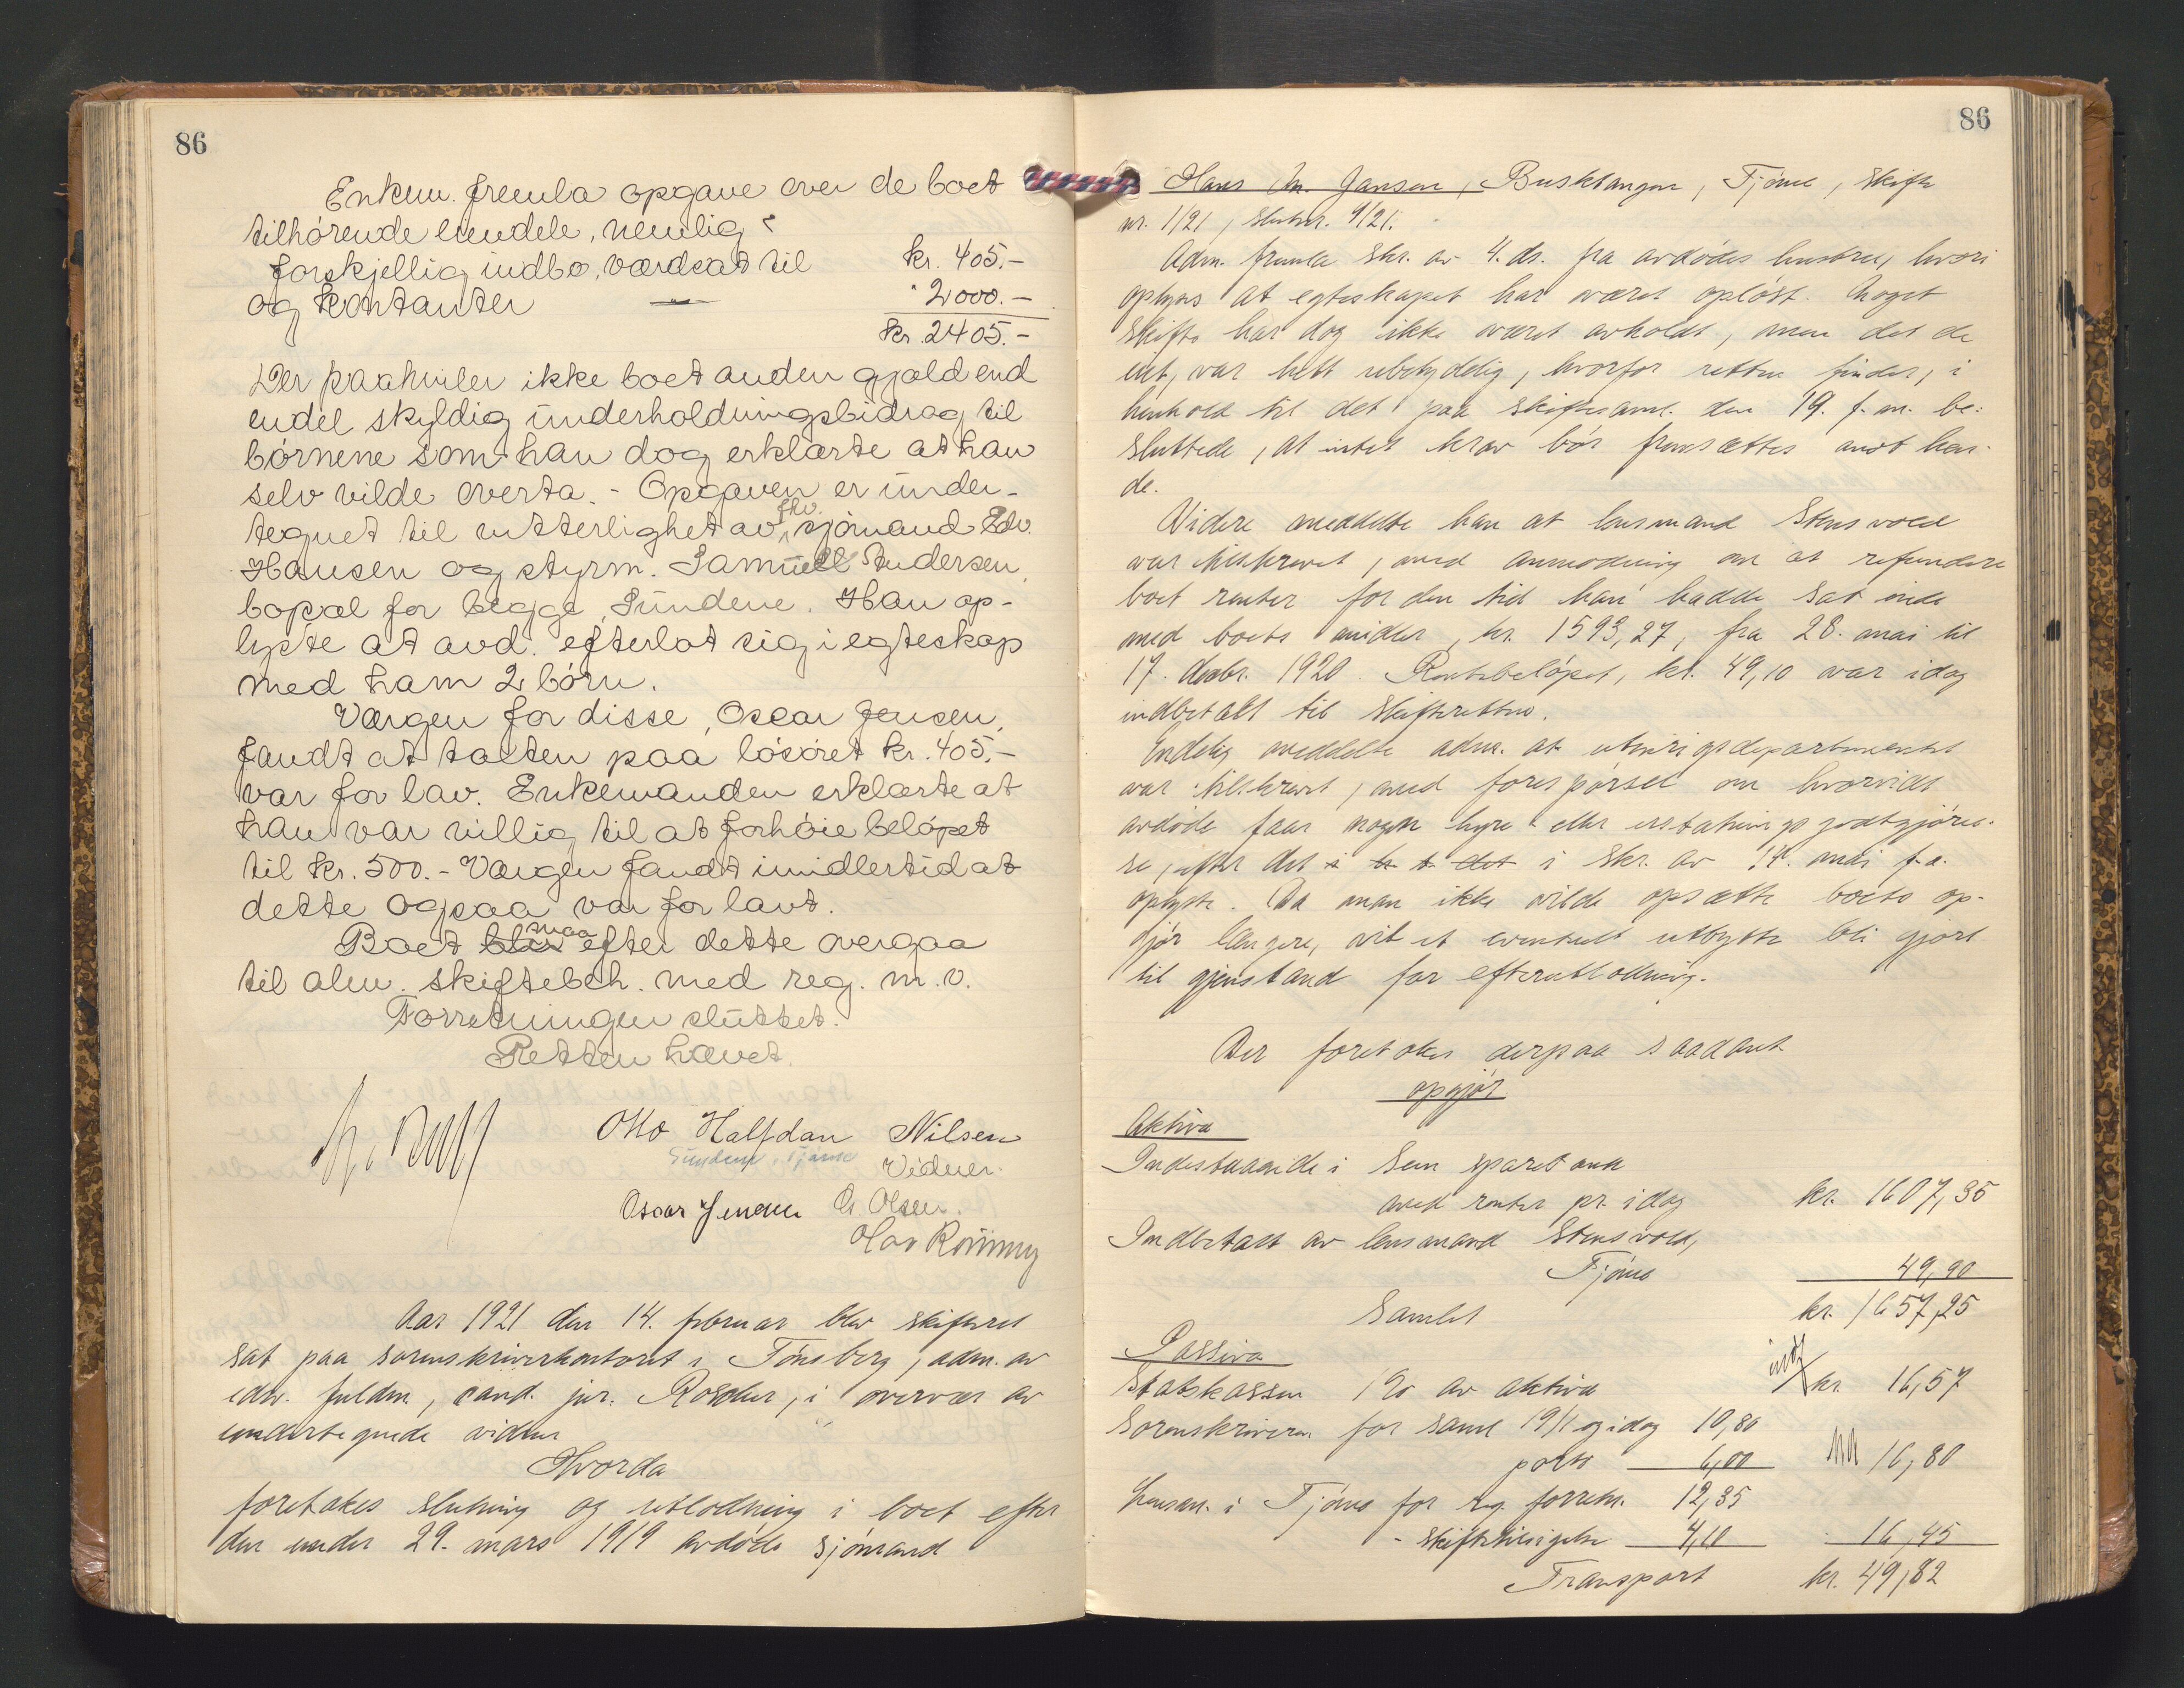 86
Enkem. fremla opgave over de boet
tilhørende eiendele, nemlig:
forskjellig indbo, værdsat til kr. 405.-
og kontanter — " 2000.-
kr. 2405.-
Der paahviler ikke boet anden gjæld end
endel skyldig underholdningsbidrag til
børnene som han dog erklærte at han
selv vilde overta. - Opgaven er under-
tegnet til vitterlighet av fhv. sjømand Edv.
Hansen og styrm. Samuel Andersen,
bopæl for begge, Sundene. Han op-
lyste at avd. efterlot sig i egteskap
med ham 2 børn.
Værgen for disse, Oscar Jensen,
fandt at taksten paa løsøret kr. 405.-
var for lav. Enkemanden erklærte at
han var villig til at forhøie beløpet
til kr. 500.- Værgen fandt imidlertid at
dette ogsaa var for lavt.
Boet blir maa efter dette overgaa
til alm. skiftebeh. med reg. m. v.
Forretningen sluttet.
Retten hævet.
Otto Halfdan Nilsen
Sundene, Tjømø
Vidner:
Oscar Jensen G. Olsen.
Olav Rønning
Aar 1921 den 14. februar blev skifteret
sat paa sorenskriverkontoret i Tønsberg, adm. av
edsv. fuldm., cand. jur. Roscher, i overvær av
undertegnede vidner
Hvorda
foretokes slutning og utlodning i boet efter
den under 29. mars 1919 avdøde sjømand
86
Hans M. Jansen, Busktangen, Tjømø, skifte
nr. 1/21, sluttnr. 9/21.
Adm. fremla skr. av 4. ds. fra avdødes hustru, hvori
oplyses at egteskapet har været opløst. Noget
skifte har dog ikke været avholdt, men det de
eiet, var helt ubetydelig, hvorfor retten finder, i
henhold til det paa skiftesaml. den 19. f. m. be-
sluttede, at intet krav bør fremsættes mot hen-
de.
Videre meddelte han at lensmand Stensvold
var tilskrevet, med anmodning om at refundere
boet renter for den tid han hadde sat inde
med boets midler, kr. 1593,27, fra 28. mai til
17. decbr. 1920. Rentebeløpet, kr. 49,10 var idag
indbetalt til skifteretten.
Endelig meddelte adm. at utenriksdepartementet
var tilskrevet, med forespørsel om hvorvidt
avdøde faar nogen hyre- eller erstatningsgodtgjørel-
se, efter det i skr. av 14. mai f. a.
oplyste. Da man ikke vilde opsætte boets op-
gjør længere, vil et eventuelt utbytte bli gjort
til gjenstand for efterutlodning.
Der foretokes derpaa saadant
opgjør
Aktiva
Indestaaende i Sem sparebank
med renter pr. idag kr. 1607,35
Indbetalt av lensmand Stensvold,
Tjømø 49,90
Samlet kr. 1657,25
Passiva
Statskassen 1% av aktiva kr. 16,57
Sorenskriveren for saml 19/1 og idag 10,80
porto 6,00 16,80
Lensm. i Tjømø for reg. forretn. 12,35
- skiftetilsigelse 4,10 - 16,45
Transport kr. 49,82